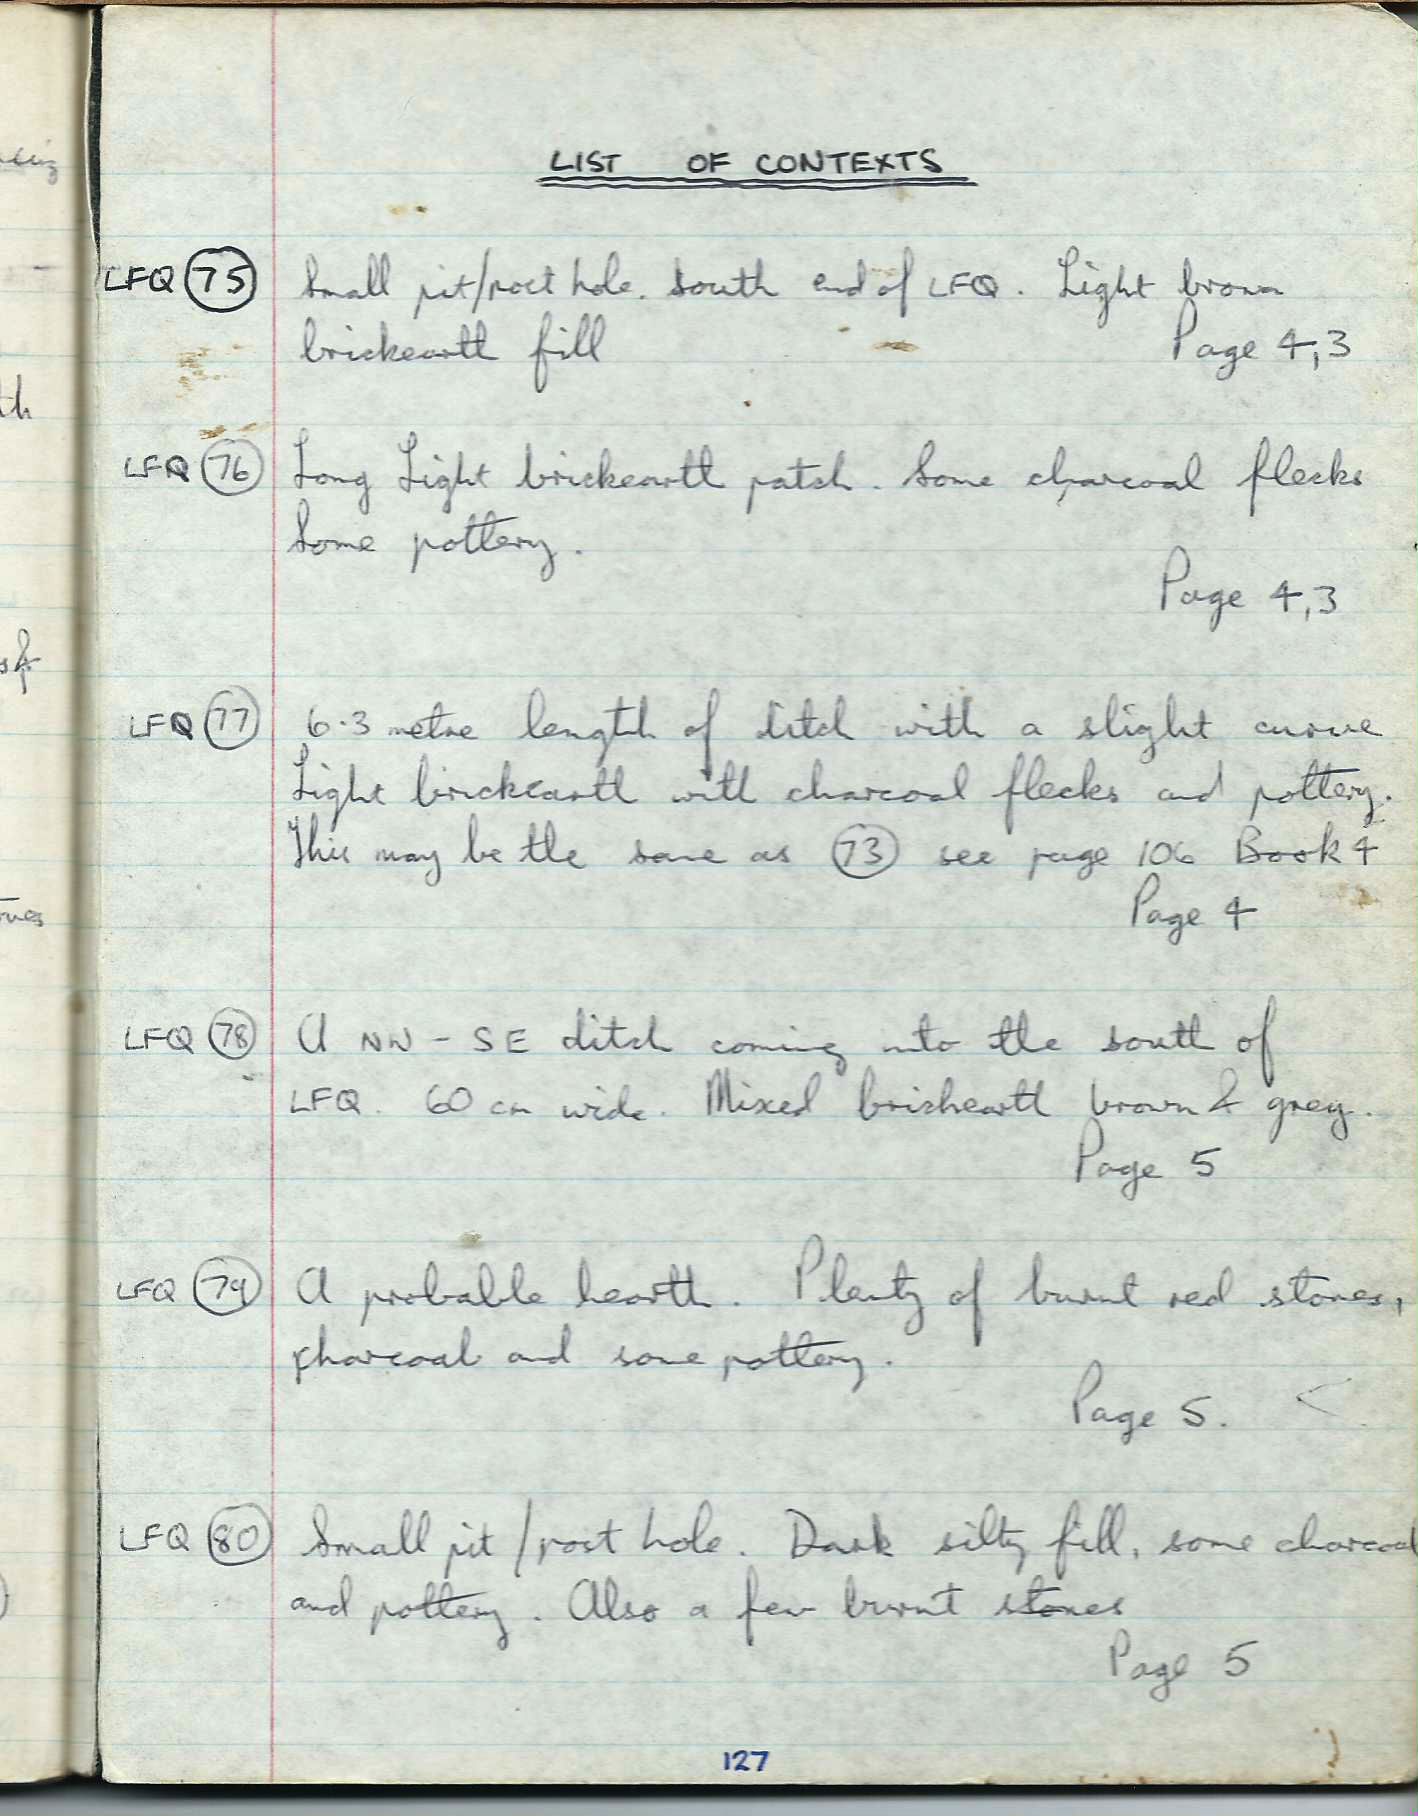 LIST OF CONTEXTS
LFQ 75 Small pit/post hole. South end of LFQ. Light brown
brickearth fill Page 4,3
LFQ 76 Long Light brickearth patch. Some charcoal flecks
Some pottery.
Page 4,3
LFQ 77 6.3 metre length of ditch with a slight curve
Light brickearth with charcoal flecks and pottery.
This may be the same as 73 see page 106 Book 4
Page 4
LFQ 78 A NW - SE ditch coming into the south of
LFQ. 60 cm wide. Mixed brickearth brown & grey.
Page 5
LFQ 79 A probable hearth. Plenty of burnt red stones,
charcoal and some pottery.
Page 5.
LFQ 80 Small pit/post hole. Dark silty fill, some charcoal
and pottery. Also a few burnt stones
Page 5
127